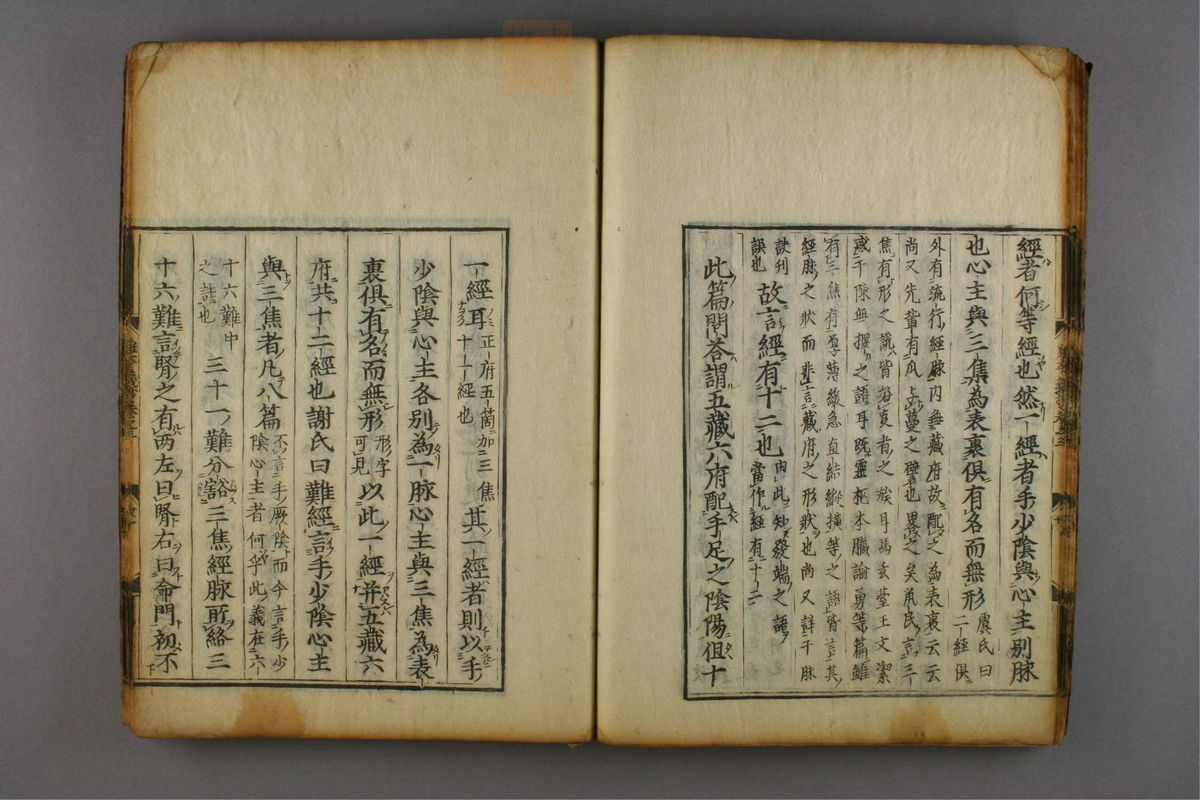 經者何等經也然一經者手少陰與心主別脉
也心主與三焦為表裏俱有名而無形 虞氏曰二經俱
外有流行經脉内無藏府故配之為表裏云云
尚又先軰有瓜蔓之譬也畧之矣凧氏言三
焦有形之説皆好異者之疾耳馬玄臺王文潔
惑于陳無擇之誰耳既靈樞本臓論勇等篇雖
有三焦有厚薄緩急直結縱橫等之語皆言其
經脉之狀而非言藏府之形狀也尚又詳于脉
訣刋誤也 故言經有十二也 由此知發端之語當作經有十二
此篇問荅謂五藏六府配手足之陰陽但十
一經耳 正府五箇加三焦十一經也 其一經者則以手
少陰與心主各別為一脉心主與三焦為表
裏俱有名而無形 形字可見 以此一經并五藏六
府共十二經也謝氏曰難經言手少陰心主
與三焦者凡八篇 不言手厥陰而今言手少陰心主者何乎此義在六
十六難中之註也 三十一難分豁三焦經脉所絡三
十六難言腎之有兩左曰腎右曰命門初不